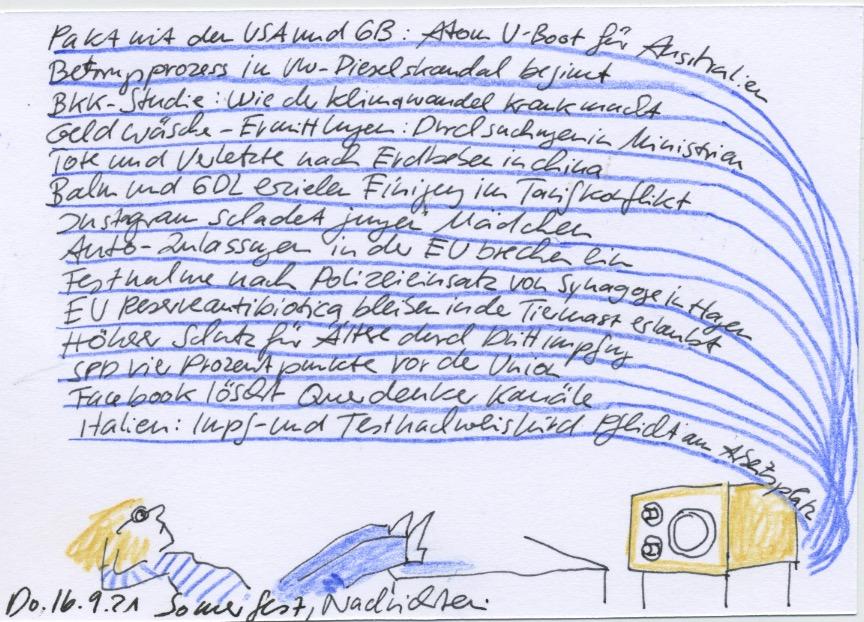 Pakt mit den USA und GB: Atom U-Boot für Australien
Betrugsprozess in VW-Dieselskandal beginnt
BKK-Studie: Wie der Klimawandel krank macht
Geldwäsche-Ermittlungen: Durchsuchungen in Ministerien
Tote und Verletzte nach Erdbeben in China
Bahn und GDL erzielen Einigung im Tarifkonflikt
Instagram schadet jungen Mädchen
Auto-Zulassungen in der EU brechen ein
Festnahme nach Polizeieinsatz von Synagoge in Hagen
EU Reserveantibiotica bleiben in der Tiermast erlaubt
Höherer Schutz für Ältere durch Drittimpfung
SPD vier Prozentpunkte vor der Union
Facebook löscht Querdenker Kanäle
Italien: Impf- und Testnachweis wird Pflicht am Arbeitsplatz
Do. 16.9.21 Sommerfest, Nachrichten